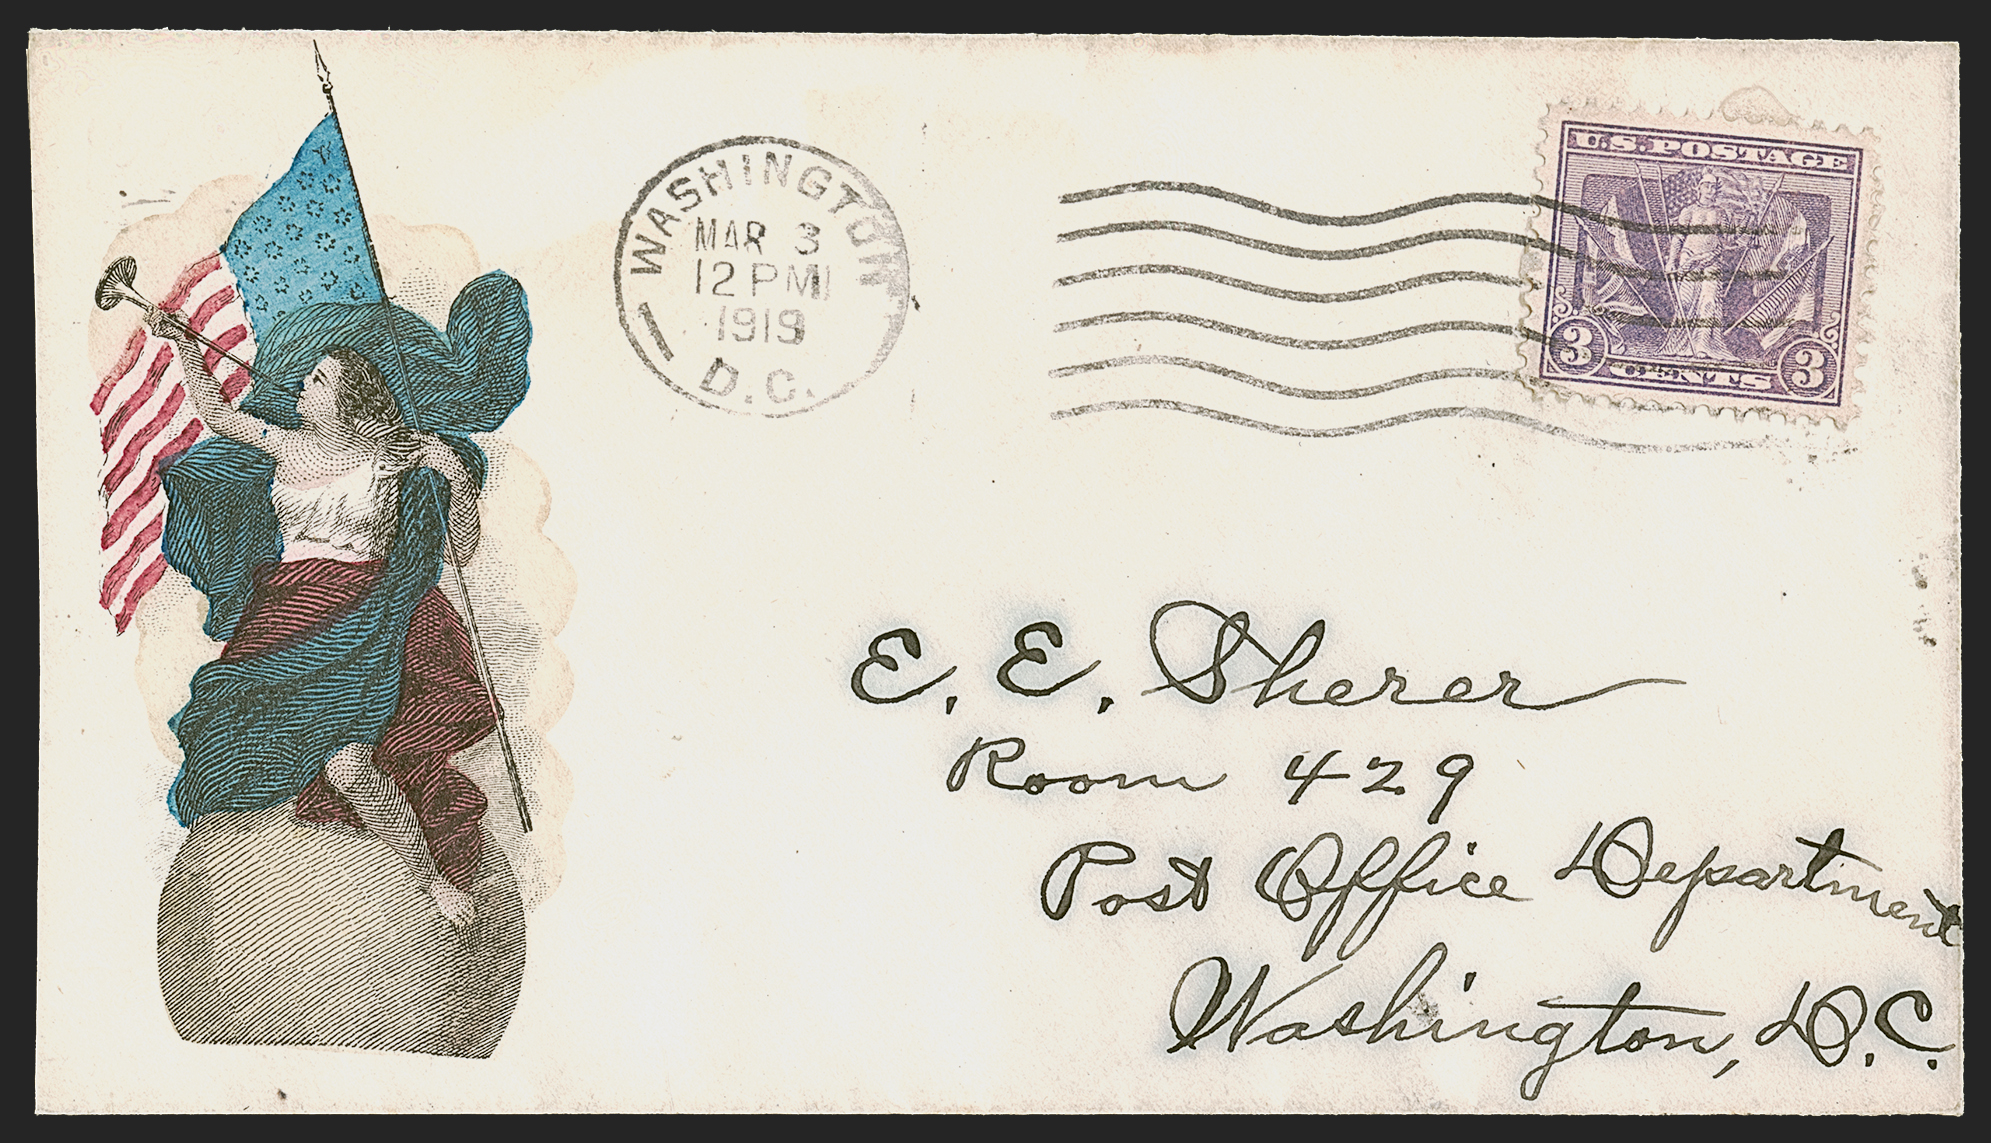 WASHINGTON
MAR 3
12 PM
1919
D.C.
U.S. POSTAGE
3 CENTS 3
E. E. Sherer
Room 429
Post Office Department
Washington, D.C.